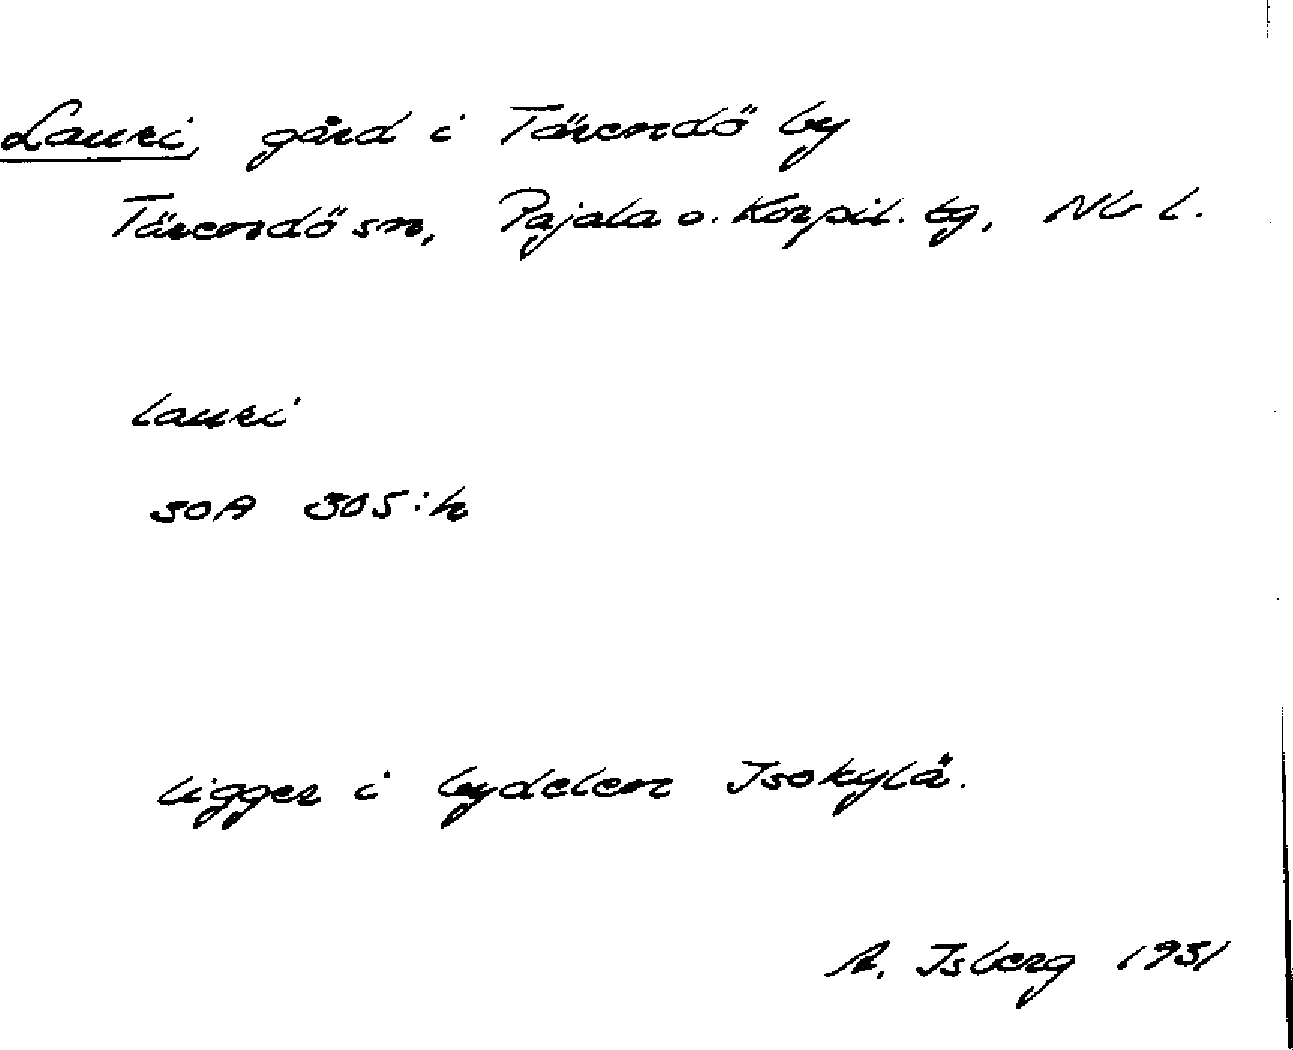 Lauri, gård i Tärendö by
Tärendö sn, Pajala o. Korpil. tg, Nb l.
lauri
30A 305:h
ligger i bydelen Isokylä.
A. Isberg 1931